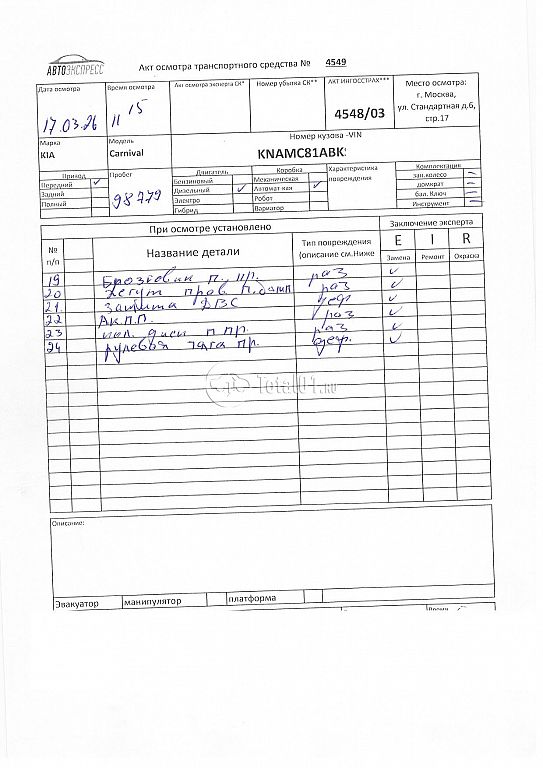 АВТОЭКСПРЕСС
Акт осмотра транспортного средства № 4549
Дата осмотра
17.03.26
Время осмотра
11 15
Акт осмотра эксперта СК*
Номер убытка СК**
АКТ ИНГОССТРАХ***
4548/03
Место осмотра:
г. Москва,
ул. Стандартная д.6,
стр.17
Марка
KIA
Модель
Carnival
Номер кузова -VIN
KNAMC81ABK
Привод
Передний ✓
Задний
Полный
Пробег
98779
Двигатель
Бензиновый
Дизельный ✓
Электро
Гибрид
Коробка
Механическая
Автоматикая ✓
Робот
Вариатор
Характеристика
повреждения
Комплектация
зап.колесо –
домкрат –
бал. Ключ –
Инструмент –
При осмотре установлено
Заключение эксперта
№
п/п
Название детали
Тип повреждения
(описание см.Ниже
E I R
Замена Ремонт Окраска
19 п. пр. раз ✓
20 прав раз ✓
21. защита ДВС деф ✓
22 АКПП. раз ✓
23 диск п пр. раз ✓
24 рулевая тяга пр. деф. ✓
Total01.ru
Описание:
Эвакуатор манипулятор платформа
Время